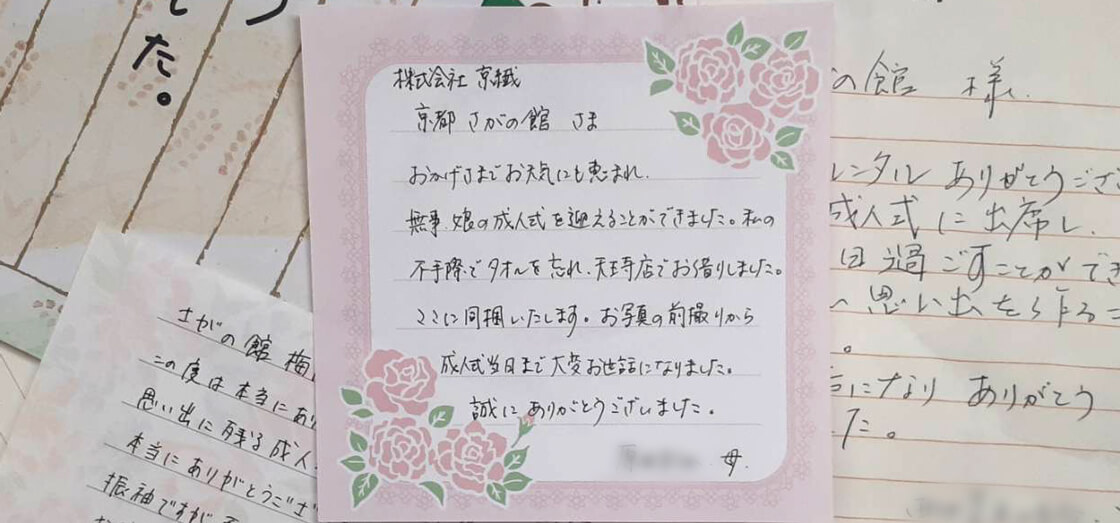 た。
株式会社 京繊
京都 さがの館 さま
おかげさまでお天気にも恵まれ、
無事、娘の成人式を迎えることができました。私の
不手際でタオルを忘れ、天王寺店でお借りしました。
ここに同梱いたします。お写真の前撮りから
成人式当日まで大変お世話になりました。
誠にありがとうございました。
母
さがの館 梅
この度は本当にあり
思い出に残る成人
本当にありがとうござ
振袖ですが
の館 様
レンタル ありがとうござ
成人式に出席し、
日過ごすことができ
思い出を作るこ
。
になり ありがとう
た。